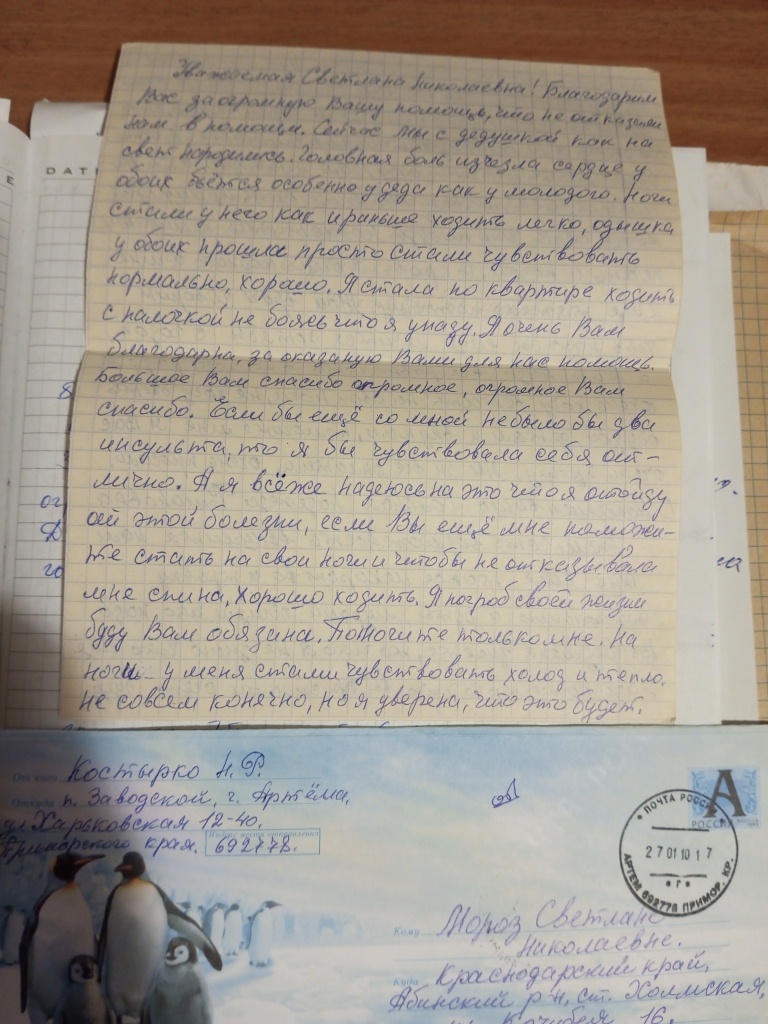 DATE
Уважаемая Светлана Николаевна! Благодарим
Вас за огромную Вашу помощь, что не отказали
нам в помощи. Сейчас мы с дедушкой как на
свет народились. Головная боль изчезла сердце у
обоих бьётся особенно у деда как у молодого. Ноги
стали у него как и раньше ходить легко, одышка
у обоих прошла просто стали чувствовать
нормально, хорошо. Я стала по квартире ходить
с палочкой не боясь что я упаду. Я очень Вам
благодарна, за оказаную Вами для нас помощь.
Большое Вам спасибо огромное, огромное Вам
спасибо. Если бы ещё со мной не было бы два
инсульта, то я бы чувствовала себя от-
лично. А я всёже надеюсь на это что я отойду
от этой болезни, если Вы ещё мне поможи-
те стать на свои ноги и чтобы не отказывала
мне спина, хорошо ходить. Я погроб своей жизни
буду Вам обязана. Помогите только мне. На
ноги у меня стали чувствовать холод и тепло,
не совсем конечно, но я уверена, что это будет.
От кого Костырко Н.Р.
Откуда п. Заводской, г. Артёма,
ул Харьковская 12-40,
Приморского края.
Индекс места отправления
692778.
А
РОССИЯ
ПОЧТА РОССИИ
27 01 10 17
г
АРТЕМ 692778 ПРИМОР. КР.
Кому Мороз Светлане
Николаевне.
Куда Краснодарский край,
Абинский р-н, ст. Холмская,
16.